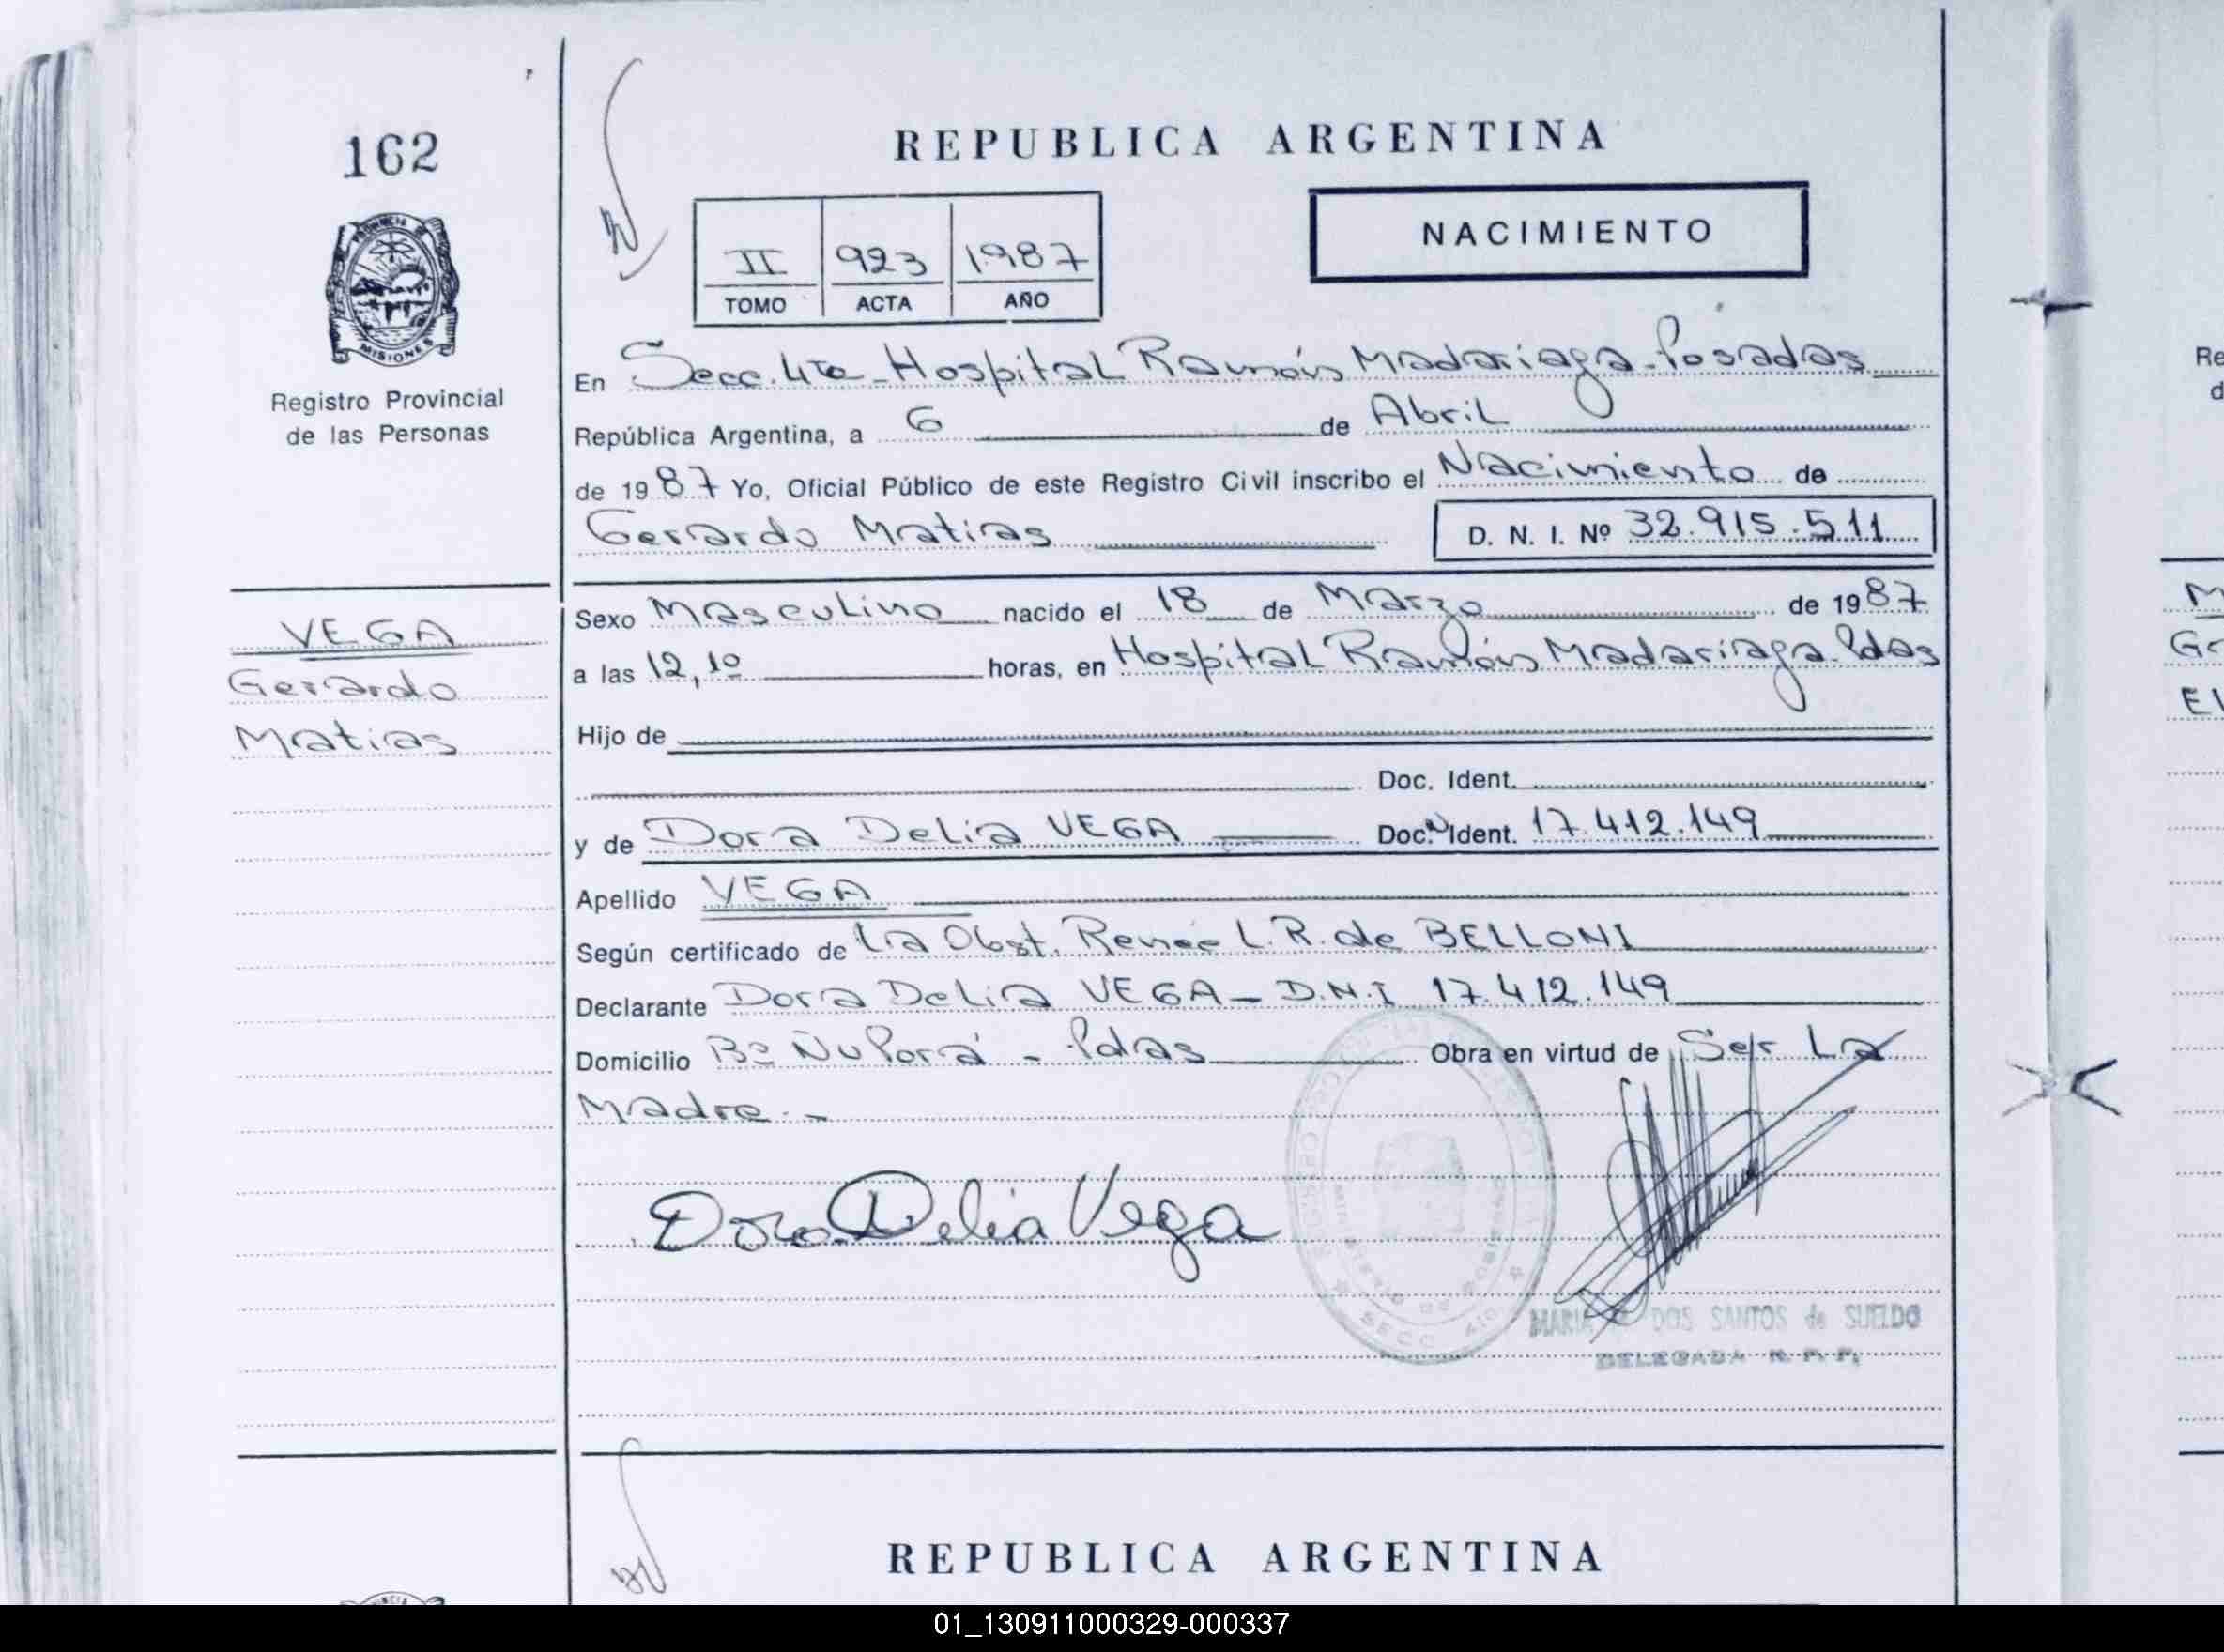 162
REPUBLICA ARGENTINA
PROVINCIA DE
MISIONES
Registro Provincial
de las Personas
II 923 1987
TOMO ACTA AÑO
NACIMIENTO
En Secc. 4ta - Hospital Ramón Madariaga - Posadas
República Argentina, a 6 de Abril
de 1987 Yo, Oficial Público de este Registro Civil inscribo el Nacimiento de
Gerardo Matias D. N. I. Nº 32.915.511
VEGA
Gerardo
Matias
Sexo Masculino nacido el 18 de Marzo de 1987
a las 12,10 horas, en Hospital Ramón Madariaga. Pdas
Hijo de
Doc. Ident.
y de Dora Delia VEGA Doc. N Ident. 17.412.149
Apellido VEGA
Según certificado de La Obst. Renée L. R. de BELLONI
Declarante Dora Delia VEGA - D.N.I 17.412.149
Domicilio Bº Ñu Porá - Pdas Obra en virtud de Ser La
Madre.-
Dora Delia Vega
MARIA DOS SANTOS de SUELDO
DELEGADA R. P. P.
REPUBLICA ARGENTINA
01_130911000329-000337